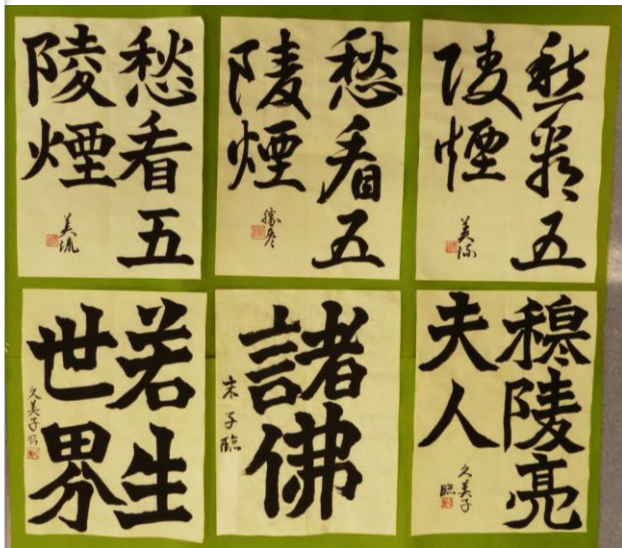 愁看五
陵煙
愁看五
陵煙
勝彦
愁看五
陵煙
若生
世界
久美子臨
諸佛
末子臨
穆陵亮
夫人
久美子
臨